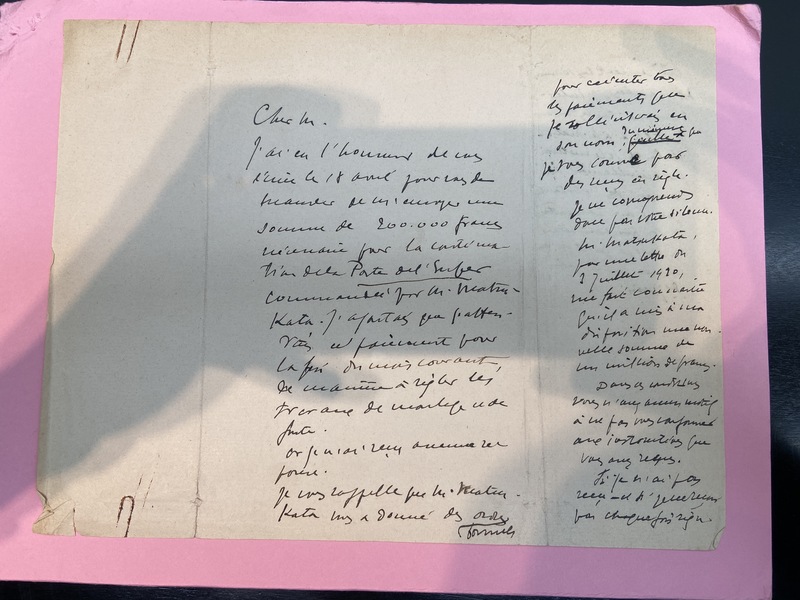 Cher M.
J'ai eu l'honneur de vous
écrire le 18 avril pour vous de
mander de m'envoyer une
somme de 200.000 francs
nécessaire pour la continua-
tion de la Porte de l'Enfer
commandée par M. Matsu-
Kata. J'ajoutais que j'atten-
dais ce paiement pour
la fin du mois courant,
de manière à régler les
travaux de moulage et de
fonte.
or je n'ai reçu aucune ré
ponse.
Je vous rappelle que M. Matsu-
Kata vous a donné des ordres
formels
pour exécuter tous
les paiements que
je solliciterais en
son nom,
je vous
des reçus en règle.
Je ne comprends
donc pas votre silence.
M. Matsukata,
par une lettre du
2 Juillet 1920,
me fait connaître
qu'il a mis à ma
disposition une nou-
velle somme de
un million de francs.
Dans ces conditions
vous n'avez aucun motif
à ne pas vous conformer
aux instructions que
vous avez reçues.
Si je n'ai pas